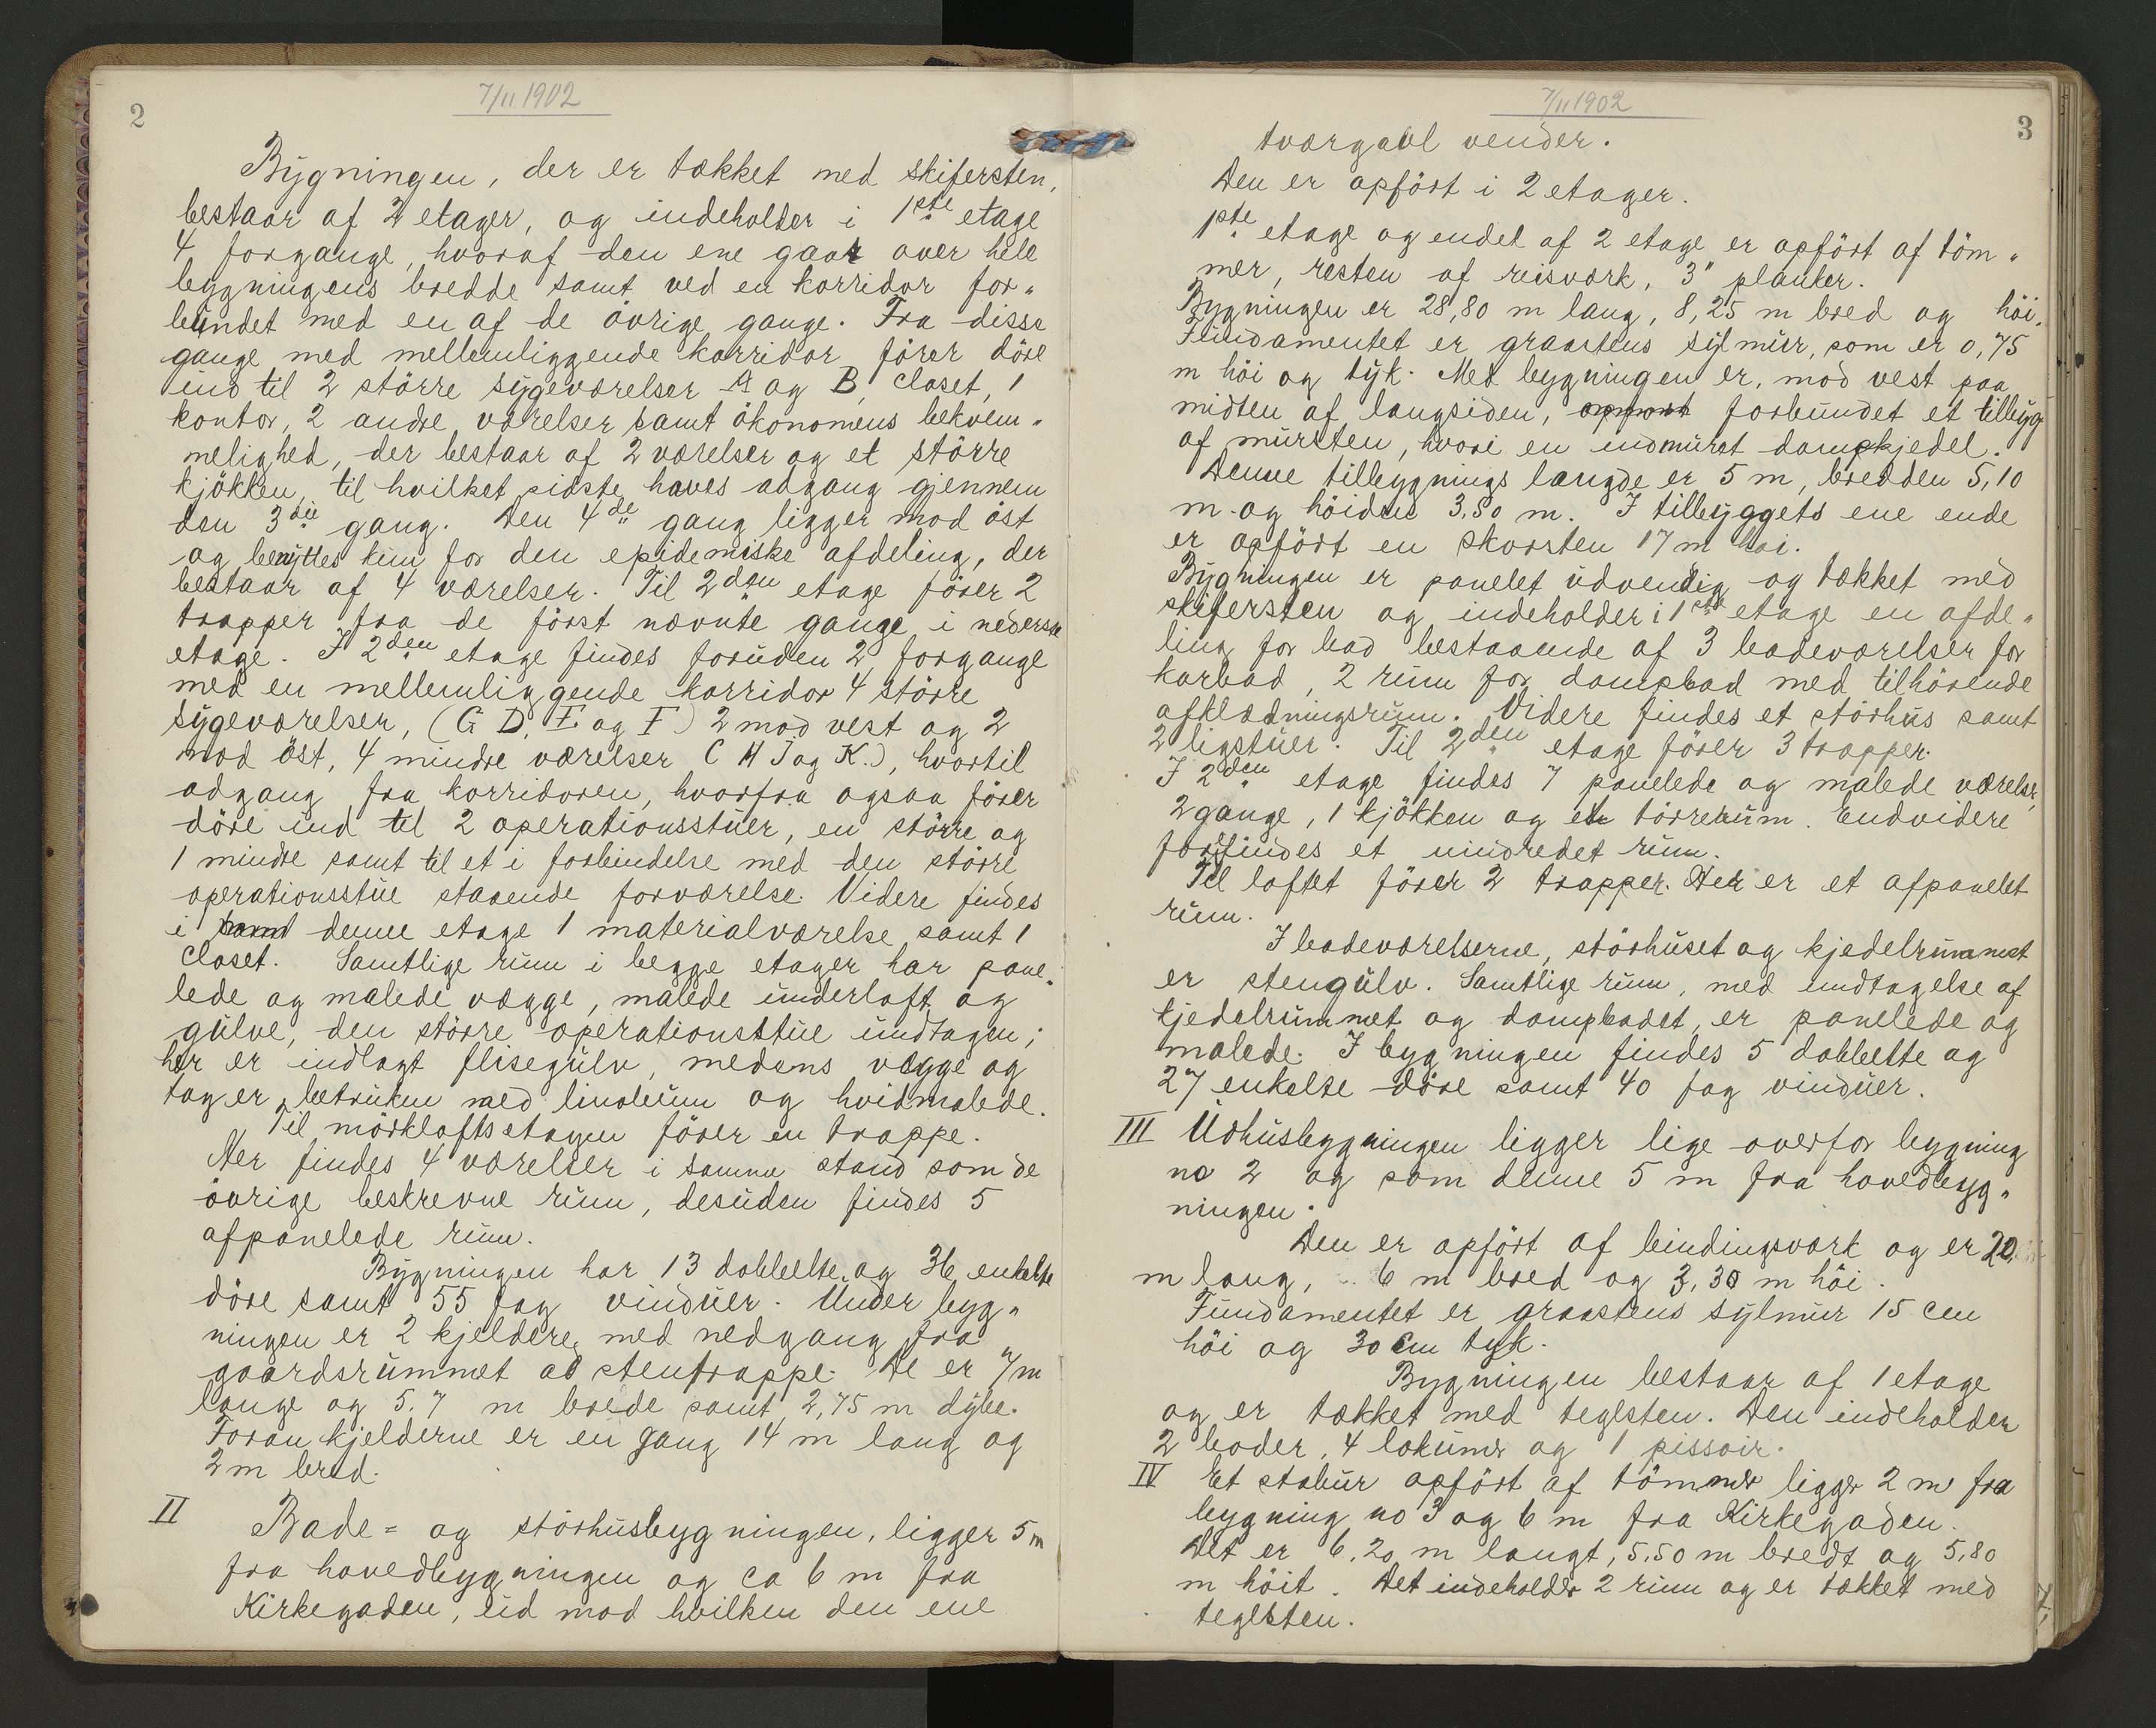 2
7/11 1902
Bygningen, der er tækket med skifersten,
bestaar af 2 etager, og indeholder i 1ste etage
4 forgange, hvoraf den ene gaar over hele
bygningens bredde samt ved en korridor for„
bundet med en af de övrige gange. Fra disse
gange med mellemliggende korridor förer döre
ind til 2 större sygeværelser A og B, closet, 1
kontor, 2 andre værelser samt ökonomens bekvem„
melighed, der bestaar af 2 værelser og et större
kjökken, til hvilket sidste haves adgang gjennem
den 3die gang. Den 4de gang ligger mod öst
og benyttes kun for den epidemiske afdeling, der
bestaar af 4 værelser. Til 2den etage förer 2
trapper fra de först nævnte gange i nederste
etage. I 2den etage findes foruden 2 forgange
med en mellemliggende korridor 4 större
sygeværelser, (G D, E og F) 2 mod vest og 2
mod öst, 4 mindre værelser (H J og K.), hvortil
adgang fra korridoren, hvorfra ogsaa förer
döre ind til 2 operationsstuer, en större og
1 mindre samt til et i forbindelse med den större
operationsstue staaende forværelse. Videre findes
i denne etage 1 materialværelse samt 1
closet. Samtlige rum i begge etager har pane„
lede og malede vægge, malede underloft og
gulve, den större operationsstue undtagen;
her er indlagt flisegulv, medens vægge og
tag er betrukne med linoleum og hvidmalede.
Til mörkloftsetagen förer en trappe.
Her findes 4 værelser i samme stand som de
övrige beskrevne rum, desuden findes 5
afpanelede rum.
Bygningen har 13 dobbelte og 36 enkelte
döre samt 55 fag vinduer. Under byg„
ningen er 2 kjeldere med nedgang fra
gaardsrummet ad stentrappe. De er 7 m
lange og 5.7 m brede samt 2,75 m dybe.
Foran kjelderne er en gang 14 m lang og
2 m bred.
II Bade= og störhusbygningen, ligger 5 m
fra hovedbygningen og ca 6 m fra
Kirkegaden, ud mod hvilken den ene
3
7/11 1902
tværgavl vender.
Den er opfört i 2 etager.
1ste etage og endel af 2 etage er opfört af töm„
mer, resten af reisværk, 3" planker.
Bygningen er 28,80 m lang, 8,25 m bred og höi.
Fundamentet er graastens sylmur, som er 0,75
m höi og tyk. Med bygningen er, mod vest paa
midten af langsiden, forbundet et tilbyg
af mursten, hvori en indmuret dampkjedel.
Denne tilbygnings længde er 5 m, bredden 5,10
m. og höiden 3.50 m. I tilbyggets ene ende
er opfört en skorsten 17 m höi.
Bygningen er panelet udvendig og tækket med
skifersten og indeholder i 1ste etage en afde„
ling for bad bestaaende af 3 badeværelser for
karbad, 2 rum for dampbad med tilhörende
afklædningsrum. Videre findes et störhus samt
2 ligstuer. Til 2den etage förer 3 trapper.
I 2den etage findes 7 panelede og malede værelser,
2 gange, 1 kjökken og et törrerum. Endvidere
forefindes et uindredet rum.
Til loftet förer 2 trapper. Her er et afpanelet
rum.
I badeværelserne, störhuset og kjedelrummet
er stengulv. Samtlige rum, med undtagelse af
kjedelrummet og dampbadet, er panelede og
malede. I bygningen findes 5 dobbelte og
27 enkelte döre samt 40 fag vinduer.
III Udhusbygningen ligger lige overfor bygning
no 2 og som denne 5 m fra hovedbyg„
ningen.
Den er opfört af bindingsværk og er 20
m lang, 6 m bred og 3,30 m höi.
Fundamentet er graastens sylmur 15 cm
höi og 30 cm tyk.
Bygningen bestaar af 1 etage
og er tækket med teglsten. Den indeholder
2 boder, 4 lokumer og 1 pissoir.
IV Et stabur opfört af tömmer ligger 2 m fra
bygning no 3 og 6 m fra Kirkegaden.
Det er 6,20 m langt, 5,50 m bredt og 5,80
m höit. Det indeholder 2 rum og er tækket med
teglsten.